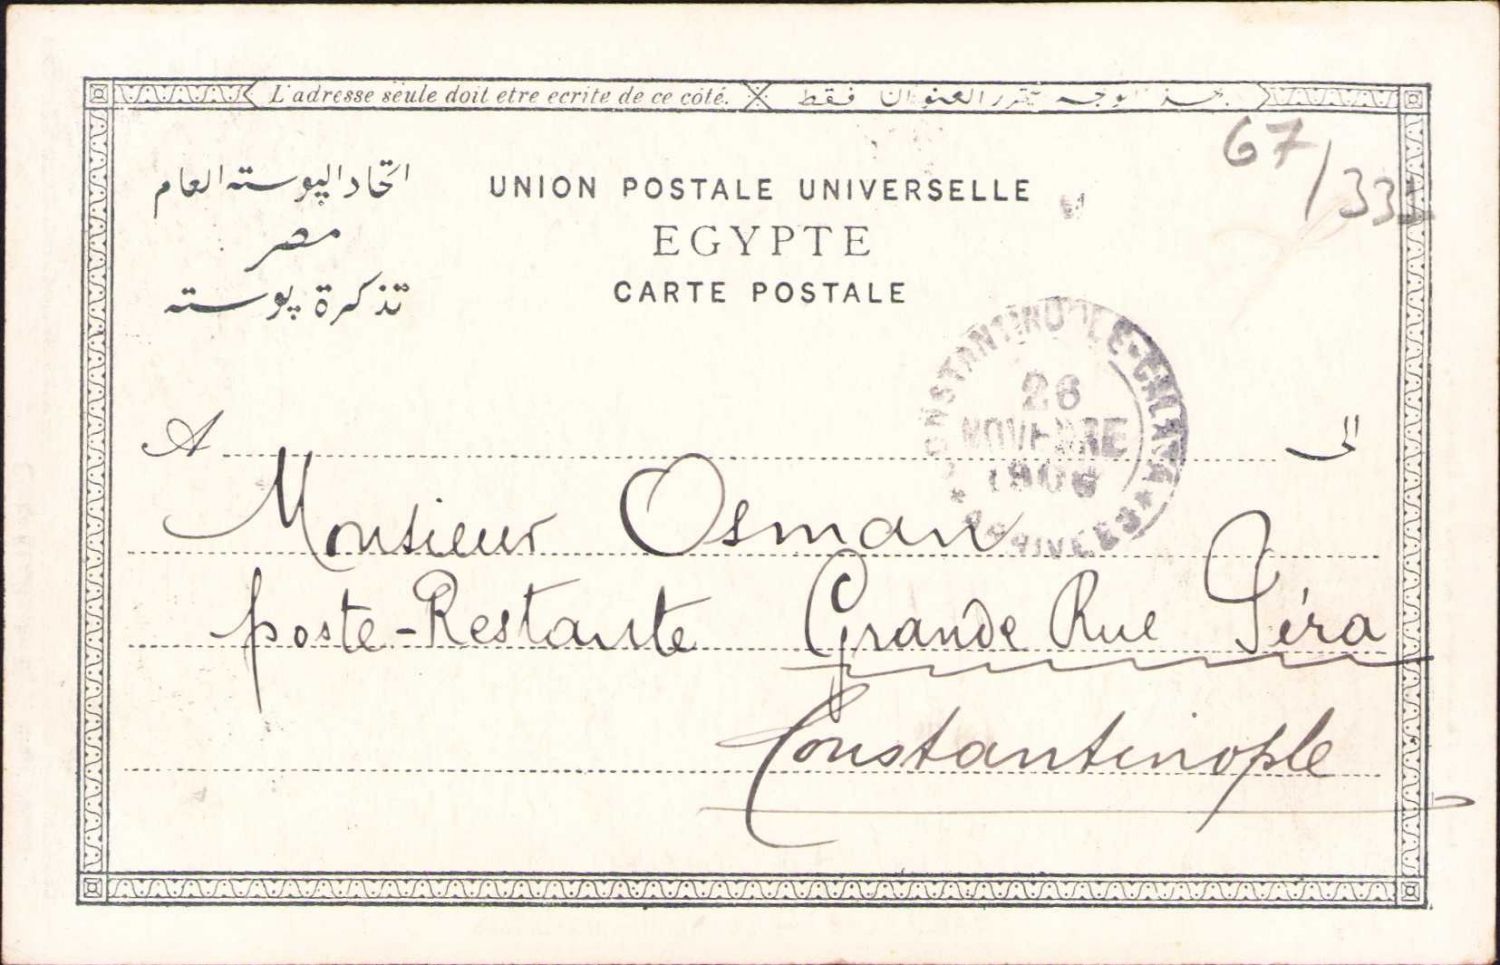 L'adresse seule doit etre ecrite de ce coté.
فقط
67/331
اتحاد البوسته العام
مصر
تذكرة بوسته
UNION POSTALE UNIVERSELLE
EGYPTE
CARTE POSTALE
CONSTANTINOPLE-GALATA
26
NOVEMBRE
ARRIVEES
A
الى
Monsieur Osman
poste-Restante Grande Rue Péra
Constantinople